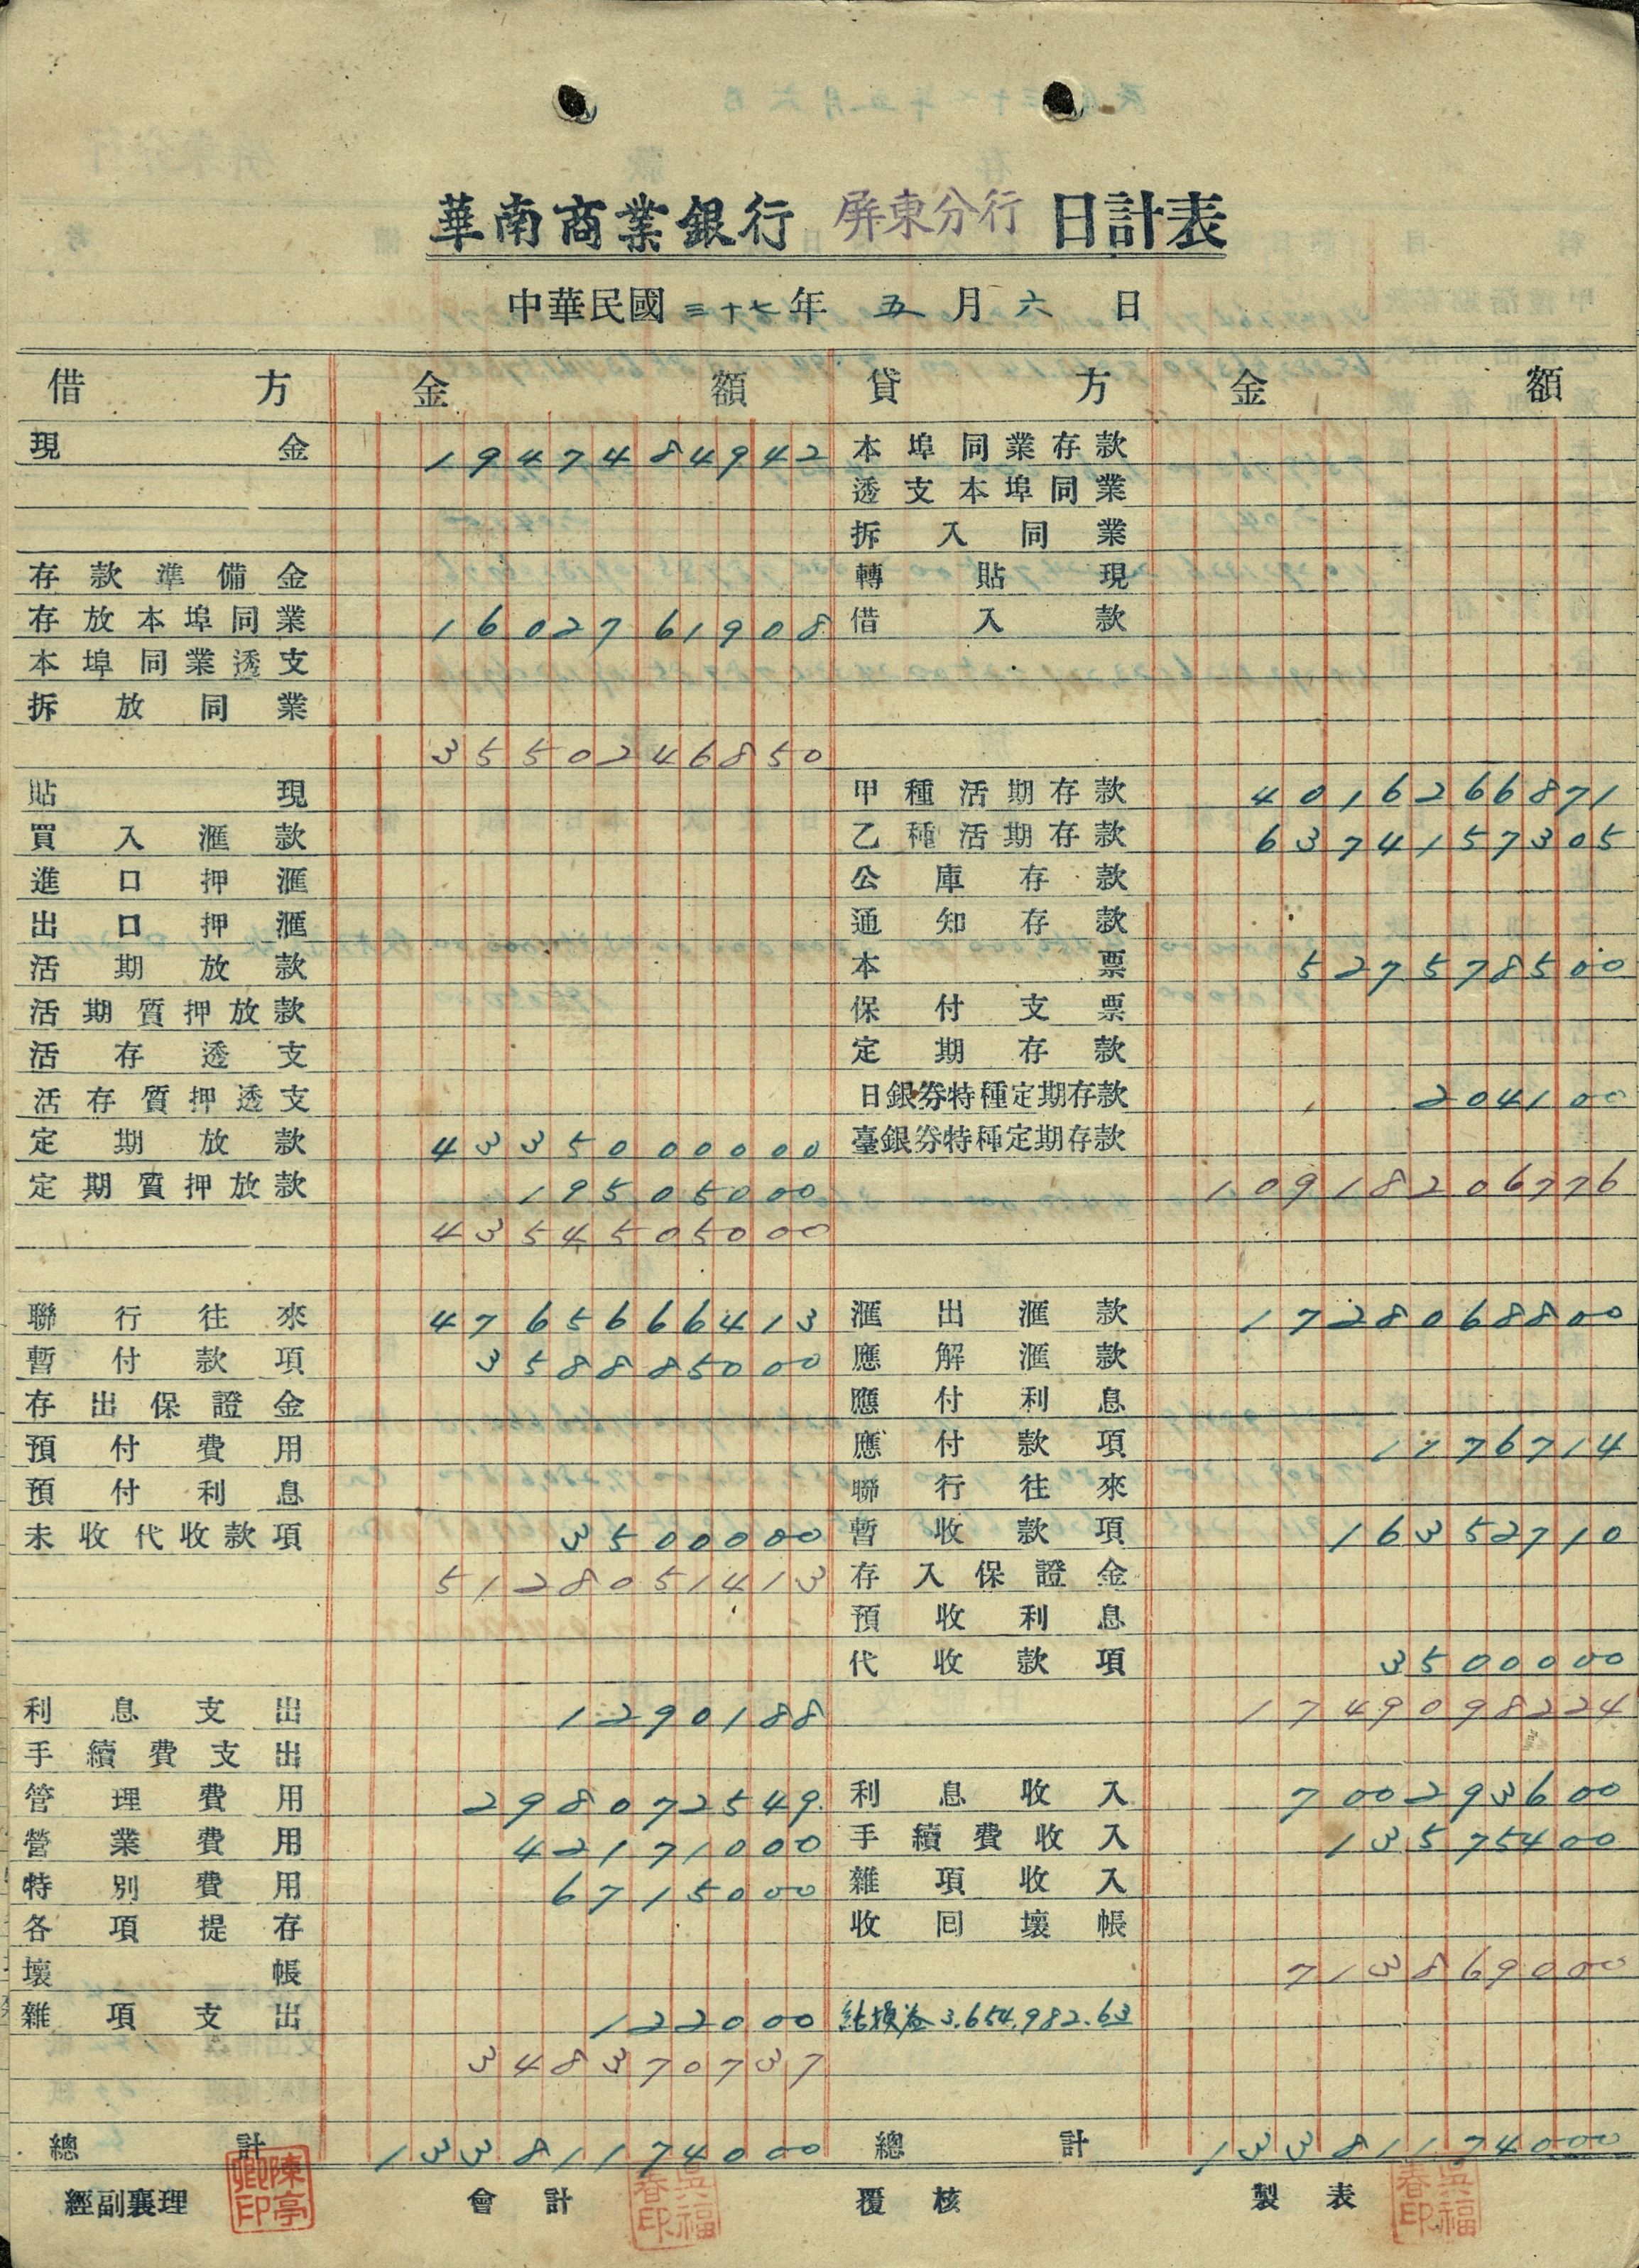 華南商業銀行 屏東分行 日計表
中華民國三十七年 五月六日
借方 金額 貸方 金額
現金 1947484942 本埠同業存款
透支本埠同業
拆入同業
存款準備金 轉貼現
存放本埠同業 1602761908 借入款
本埠同業透支
拆放同業
3550246850
貼現 甲種活期存款 4016266871
買入滙款 乙種活期存款 6374157305
進口押滙 公庫存款
出口押滙 通知存款
活期放款 本票 527578500
活期質押放款 保付支票
活存透支 定期存款
活存質押透支 日銀券特種定期存款 204100
定期放款 4335000000 臺銀券特種定期存款
定期質押放款 19505000 10918206776
4354505000
聯行往來 4765666413 滙出滙款 1728068800
暫付款項 358885000 應解滙款
存出保證金 應付利息
預付費用 應付款項 1176714
預付利息 聯行往來
未收代收款項 3500000 暫收款項 16352710
5128051413 存入保證金
預收利息
代收款項 3500000
利息支出 1290188 1749098224
手續費支出
管理費用 298072549 利息收入 700293600
營業費用 42171000 手續費收入 13575400
特別費用 6715000 雜項收入
各項提存 收回壞帳
壞帳 713869000
雜項支出 122000 結損益 3,654,982.63
348370737
總計 13381174000 總計 13381174000
經副襄理 陳亭卿印 會計 吳福春印 覆核 製表 吳福春印